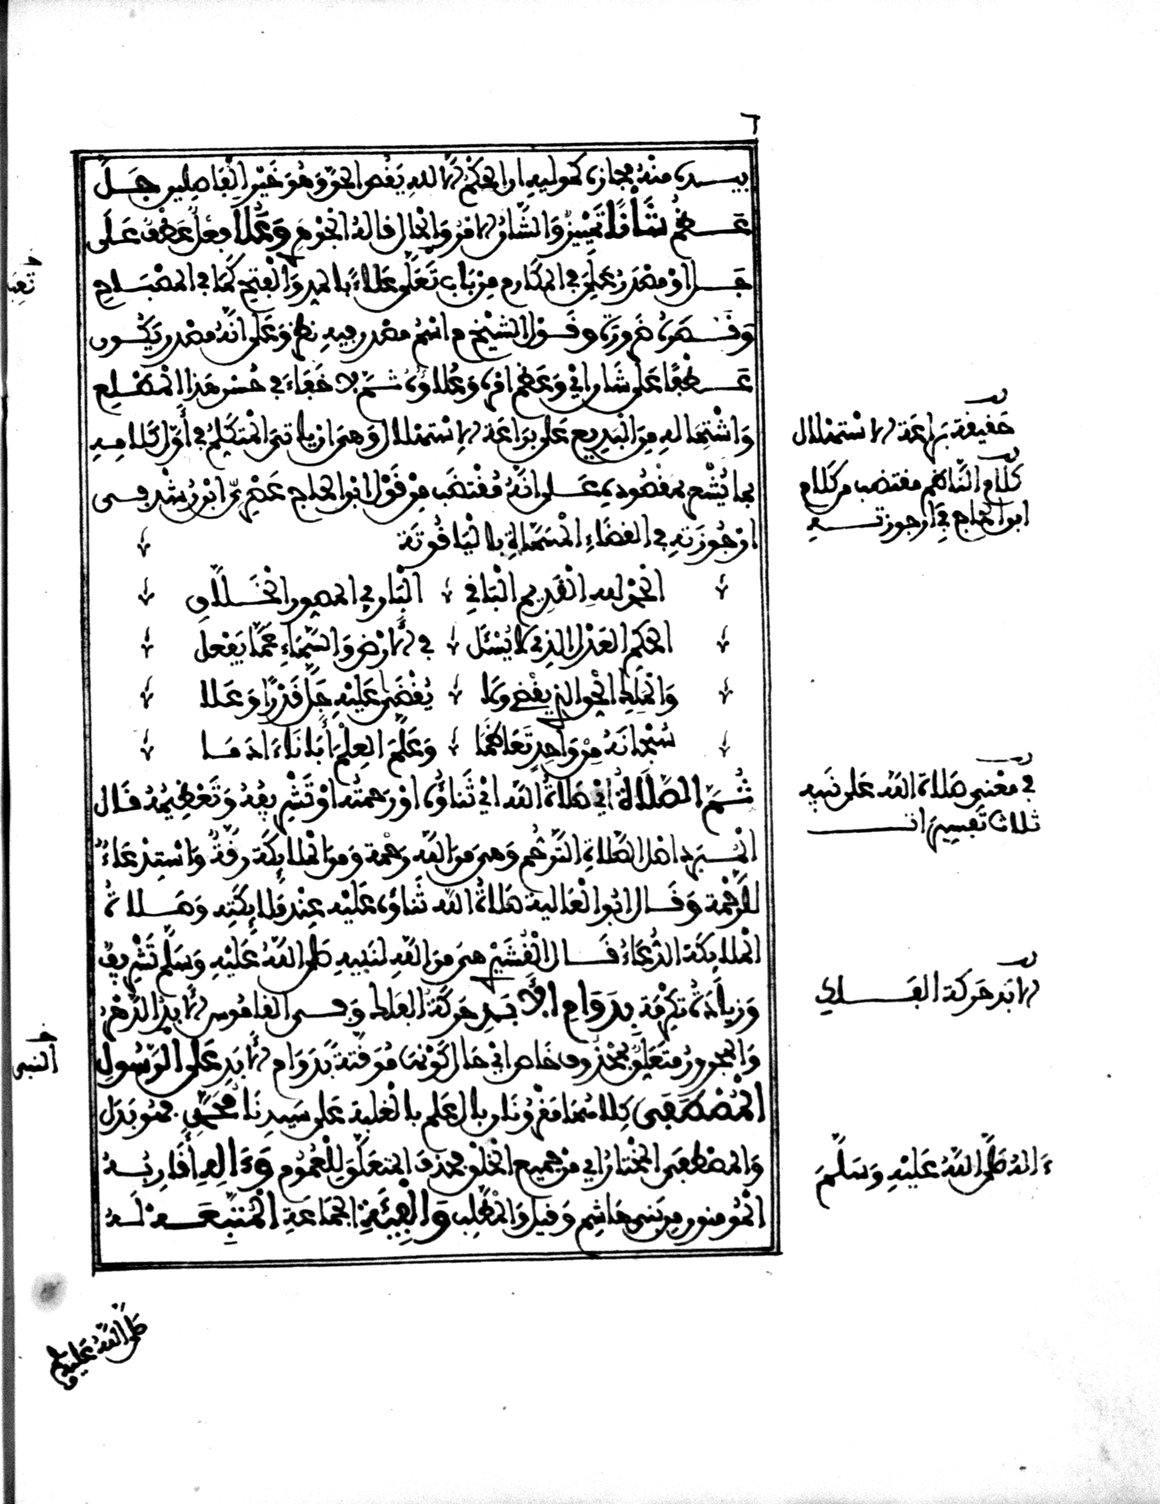 ٦
بيده منه مجاز كموليه ان الحكم الا لله يقص الحق وهو خير الفاصلين جل
عظم شأنا تمييز والشان الامر والحال قاله الجوهر وعلا فعل عطف على
جل او مصدر على في المكارم من باب تعب علاء بالمد والفتح كما في المصباح
وقصره ضرورة وقول الشيخ م اسم مصدر فيه نظر وعلى انه مصدر يكون
عطفا على شان اي وعظم امره وعلاؤه ثم لا خفاء في حسن هذا المطلع
واشتماله من البديع على براعة الاستهلال وهي ان ياتي المتكلم في أول كلامه
بما يشعر بمقصوده على انه مقتضب من قول ابن الحاج عصري ابن رشد في
ارجوزته في القضاء المسماة بالياقوتة
الحمد لله القديم الباقي الباري المصور الخلاق
الحكم العدل الذي لا يسئل في الارض والسماء عما يفعل
والملك الحق الذي يقضي ولا يقضى عليه جل قدرا وعلا
سبحانه من واحد تعاظما وعلم العلم أبانا ءادما
ثم الصلاة اي صلاة الله اي ثناؤه او رحمته او تشريفه وتعظيمه قال
المبرد اصل الصلاة الترحم وهي من الله رحمة ومن الملائكة رقة واستدعاء
للرحمة وقال ابو العالية صلاة الله ثناؤه عليه عند ملائكته وصلاة
الملائكة الدعاء قال القشير هي من الله لنبيه صلى الله عليه وسلم تشريف
وزيادة تكرمة بدوام الأبد حركة الفلك وفي القاموس الابد الدهر
والمجرور متعلق بمحذوف خاص اي حال كونها موقتة بدوام الابد على الرسول
المصطفى كلاهما مقرونان بال علم بالغلبة على سيدنا محمد فهو بدل
والمصطفى المختار اي من جميع الخلق بحذف المتعلق للعموم وءاله أقاربه
المومنون من بني هاشم وقيل والمطلب والفئة الجماعة المتبعة له
حقيقة براعة الاستهلال
كلام الناظم مقتضب من كلام
ابن الحاج في ارجوزته
في معنى صلاة الله على نبيه
ثلاث تفسيرات
الابد حركة الفلك
ءاله صلى الله عليه وسلم
تعب
النبي
صلى الله عليه